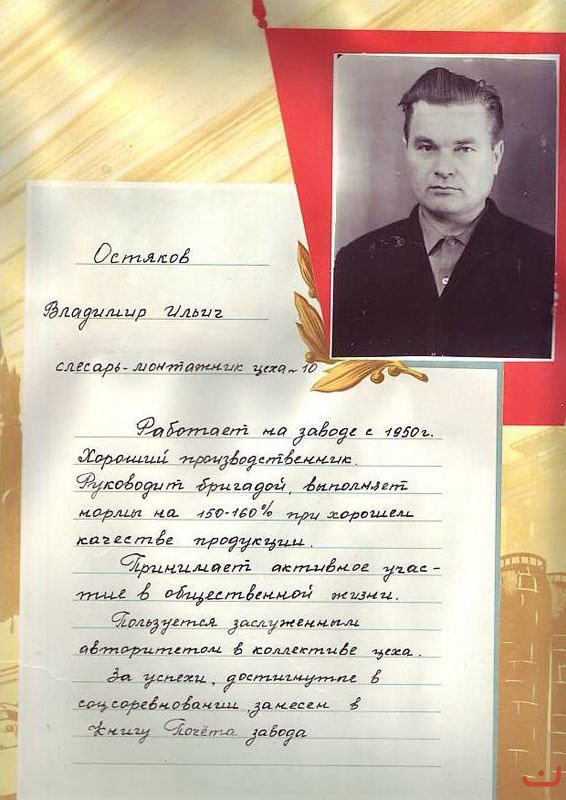 Остяков
Владимир Ильич
слесарь-монтажник цеха-10
Работает на заводе с 1950г.
Хороший производственник.
Руководит бригадой, выполняет
нормы на 150-160% при хорошем
качестве продукции.
Принимает активное учас-
тие в общественной жизни.
Пользуется заслуженным
авторитетом в коллективе цеха.
За успехи, достигнутые в
соцсоревновании, занесен в
Книгу Почёта завода